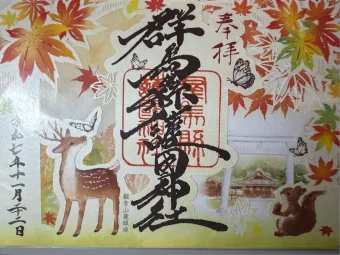 奉拝
群馬縣護国神社
令和七年十一月二十二日